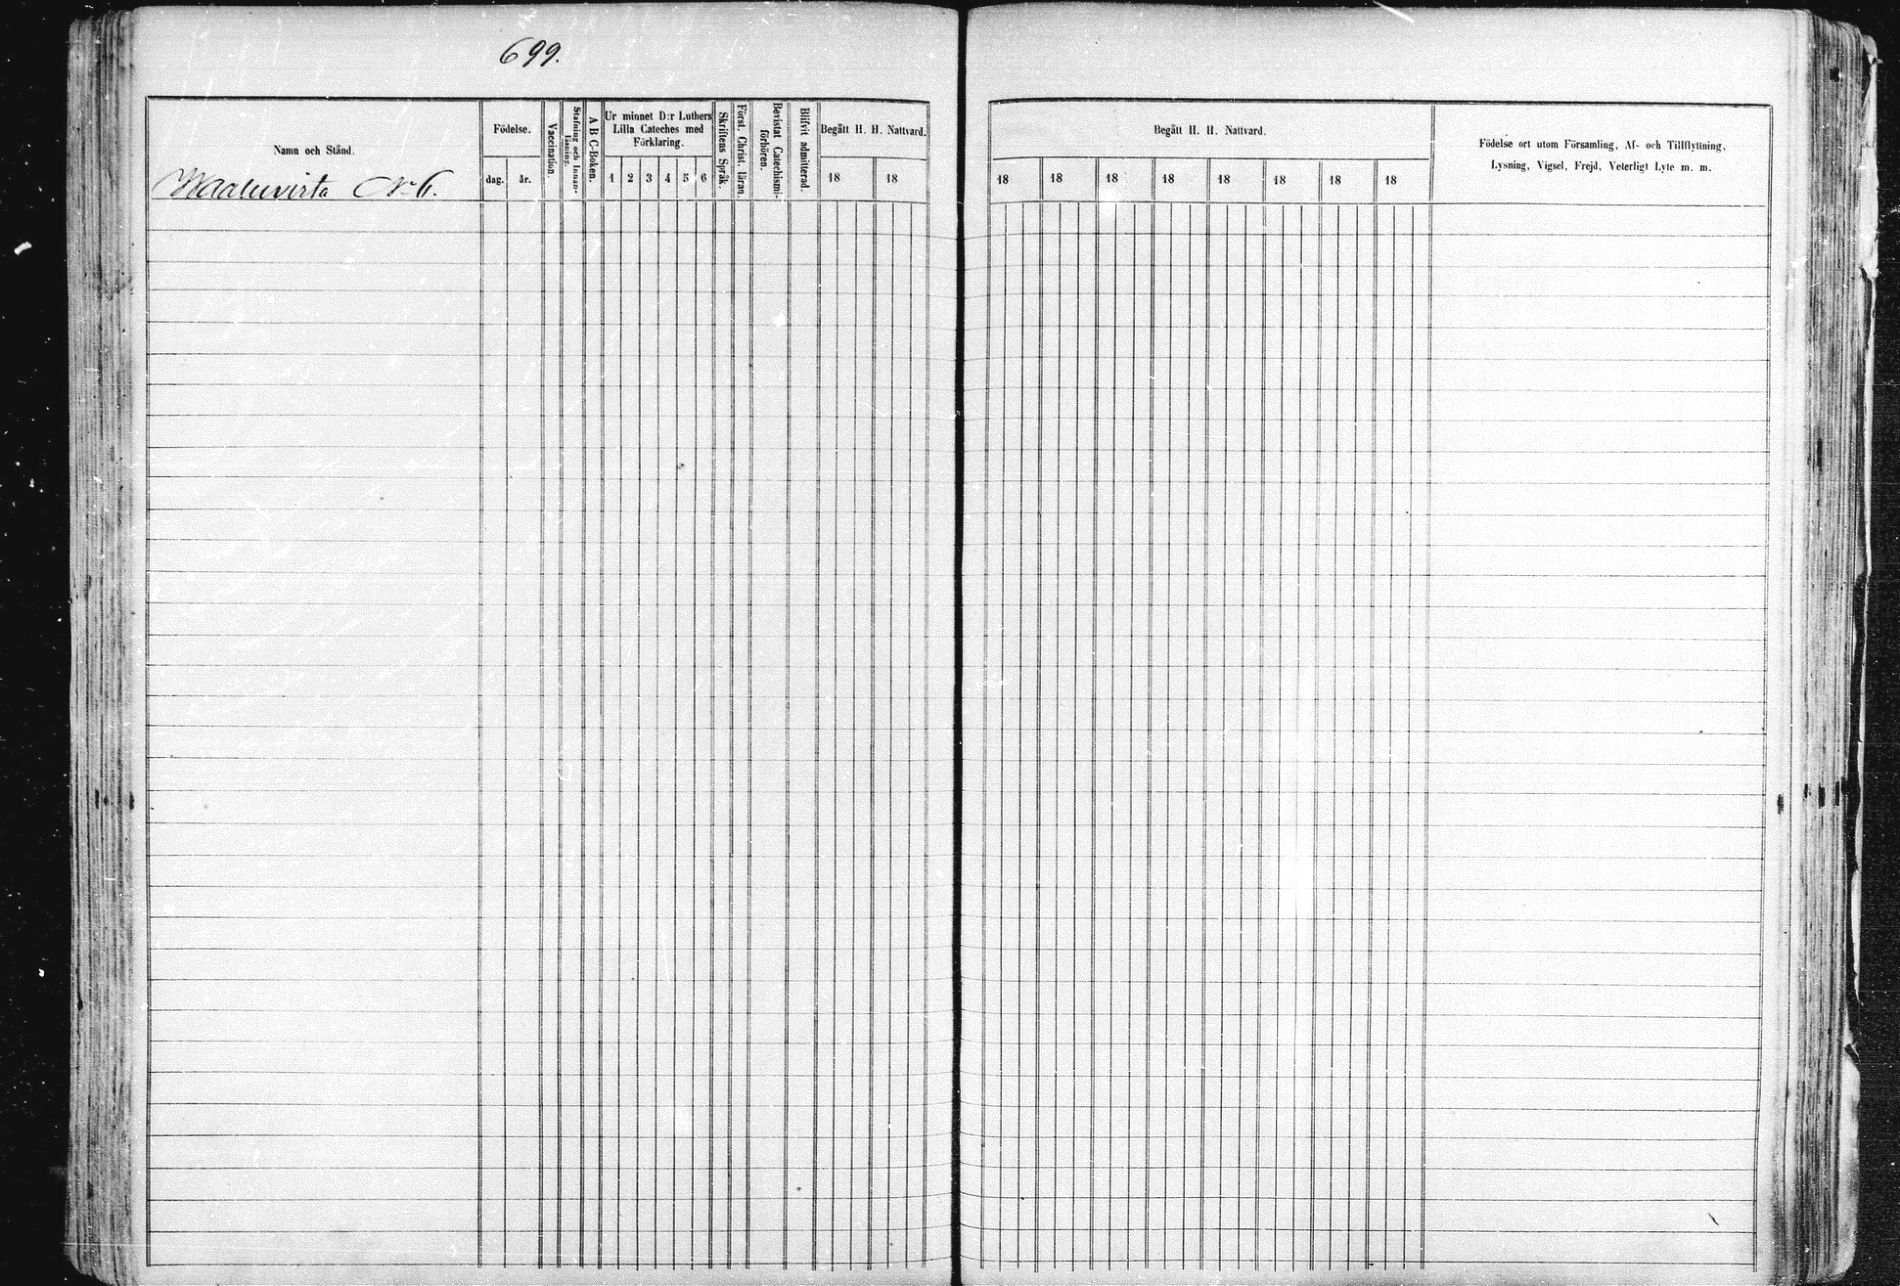 699.
Namn och Stånd.
Födelse.
dag.
år.
Vaccination.
Stafning och Innan-
läsning.
A B C-Boken.
Ur minnet D:r Luthers
Lilla Cateches med
Förklaring.
1 2 3 4 5 6
Skriftens Språk.
Först. Christ. läran.
Bevistat Catechismi-
förhören.
Blifvit admitterad.
Begått H. H. Nattvard.
18 18
N:o 6.
Begått H. H. Nattvard.
18 18 18 18 18 18 18 18
Födelse ort utom Församling, Af- och Tillflyttning,
Lysning, Vigsel, Frejd, Veterligt Lyte m. m.